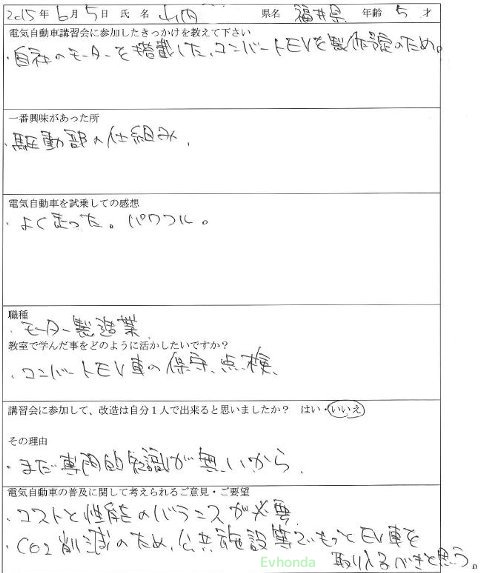 2015年 6月 5日 氏 名 山内 県名 福井県 年齢 5 才
電気自動車講習会に参加したきっかけを教えて下さい
・自社のモーターを搭載した、コンバートEVを製作予定のため。
一番興味があった所
・駆動部の仕組み、
電気自動車を試乗しての感想
・よく走った。パワフル。
職種
・モーター製造業
教室で学んだ事をどのように活かしたいですか?
・コンバートEV車の保守、点検、
講習会に参加して、改造は自分1人で出来ると思いましたか? はい・いいえ
その理由
・まだ専門的知識が無いから
電気自動車の普及に関して考えられるご意見・ご要望
・コストと性能のバランスが必要
・CO2削減のため、公共施設等でもっとEV車を
取り入るべきと思う。
Evhonda